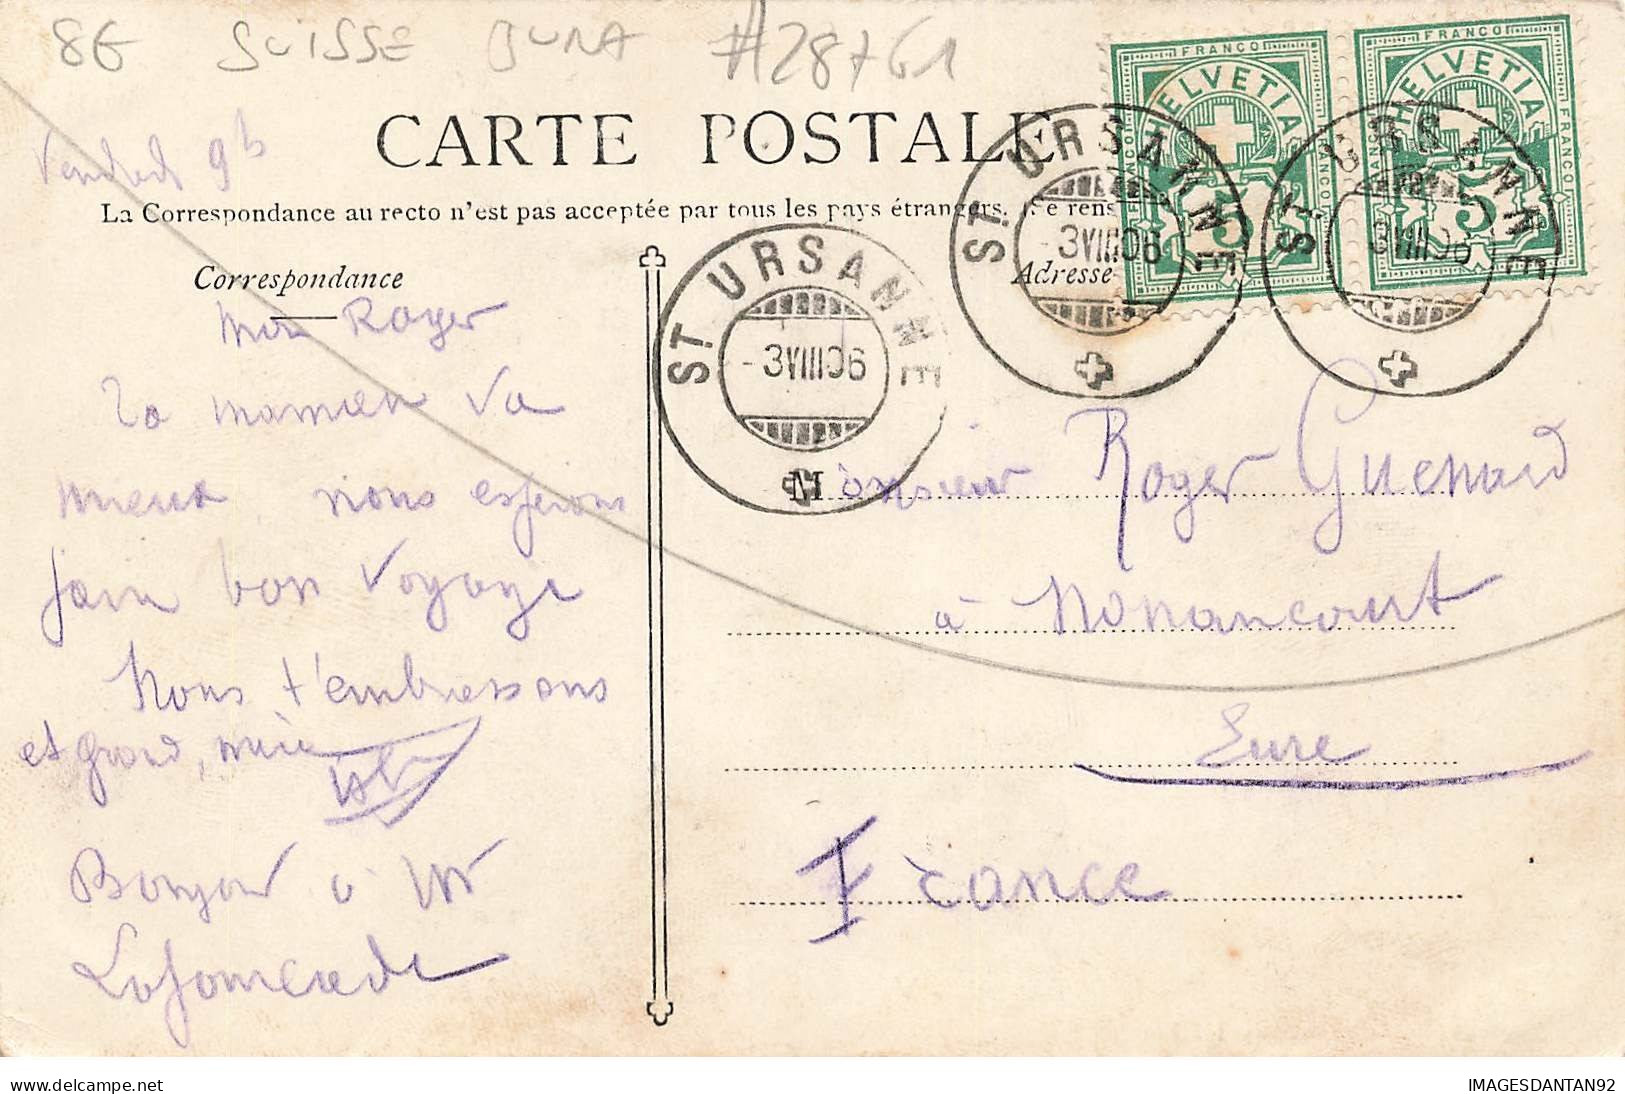 8E SUISSE JURA #28761
FRANCO
HELVETIA
5
FRANCO
HELVETIA
5
CARTE POSTALE
Vendredi 9h
La Correspondance au recto n'est pas acceptée par tous les pays étrangers.
ST URSANNE
-3VIII06
ST URSANNE
-3VIII06
ST URSANNE
-3VIII06
Correspondance
Adresse
Mon Roger
Ta maman va
mieux, nous esperons
faire bon voyage
Nous t'embrassons
et grand, mère
Bonjour à Mr
Monsieur Roger Guenard
à Nonancourt
Eure
France
delcampe.net
IMAGESDANTAN92